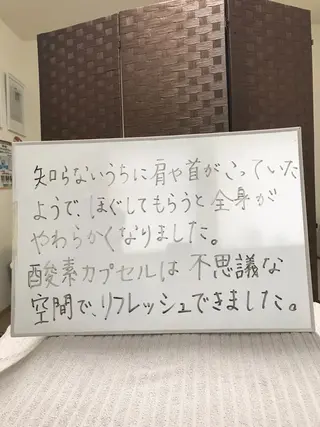 知らないうちに肩や首がこっていた
ようで、ほぐしてもらうと全身が
やわらかくなりました。
酸素カプセルは不思議な
空間で、リフレッシュできました。